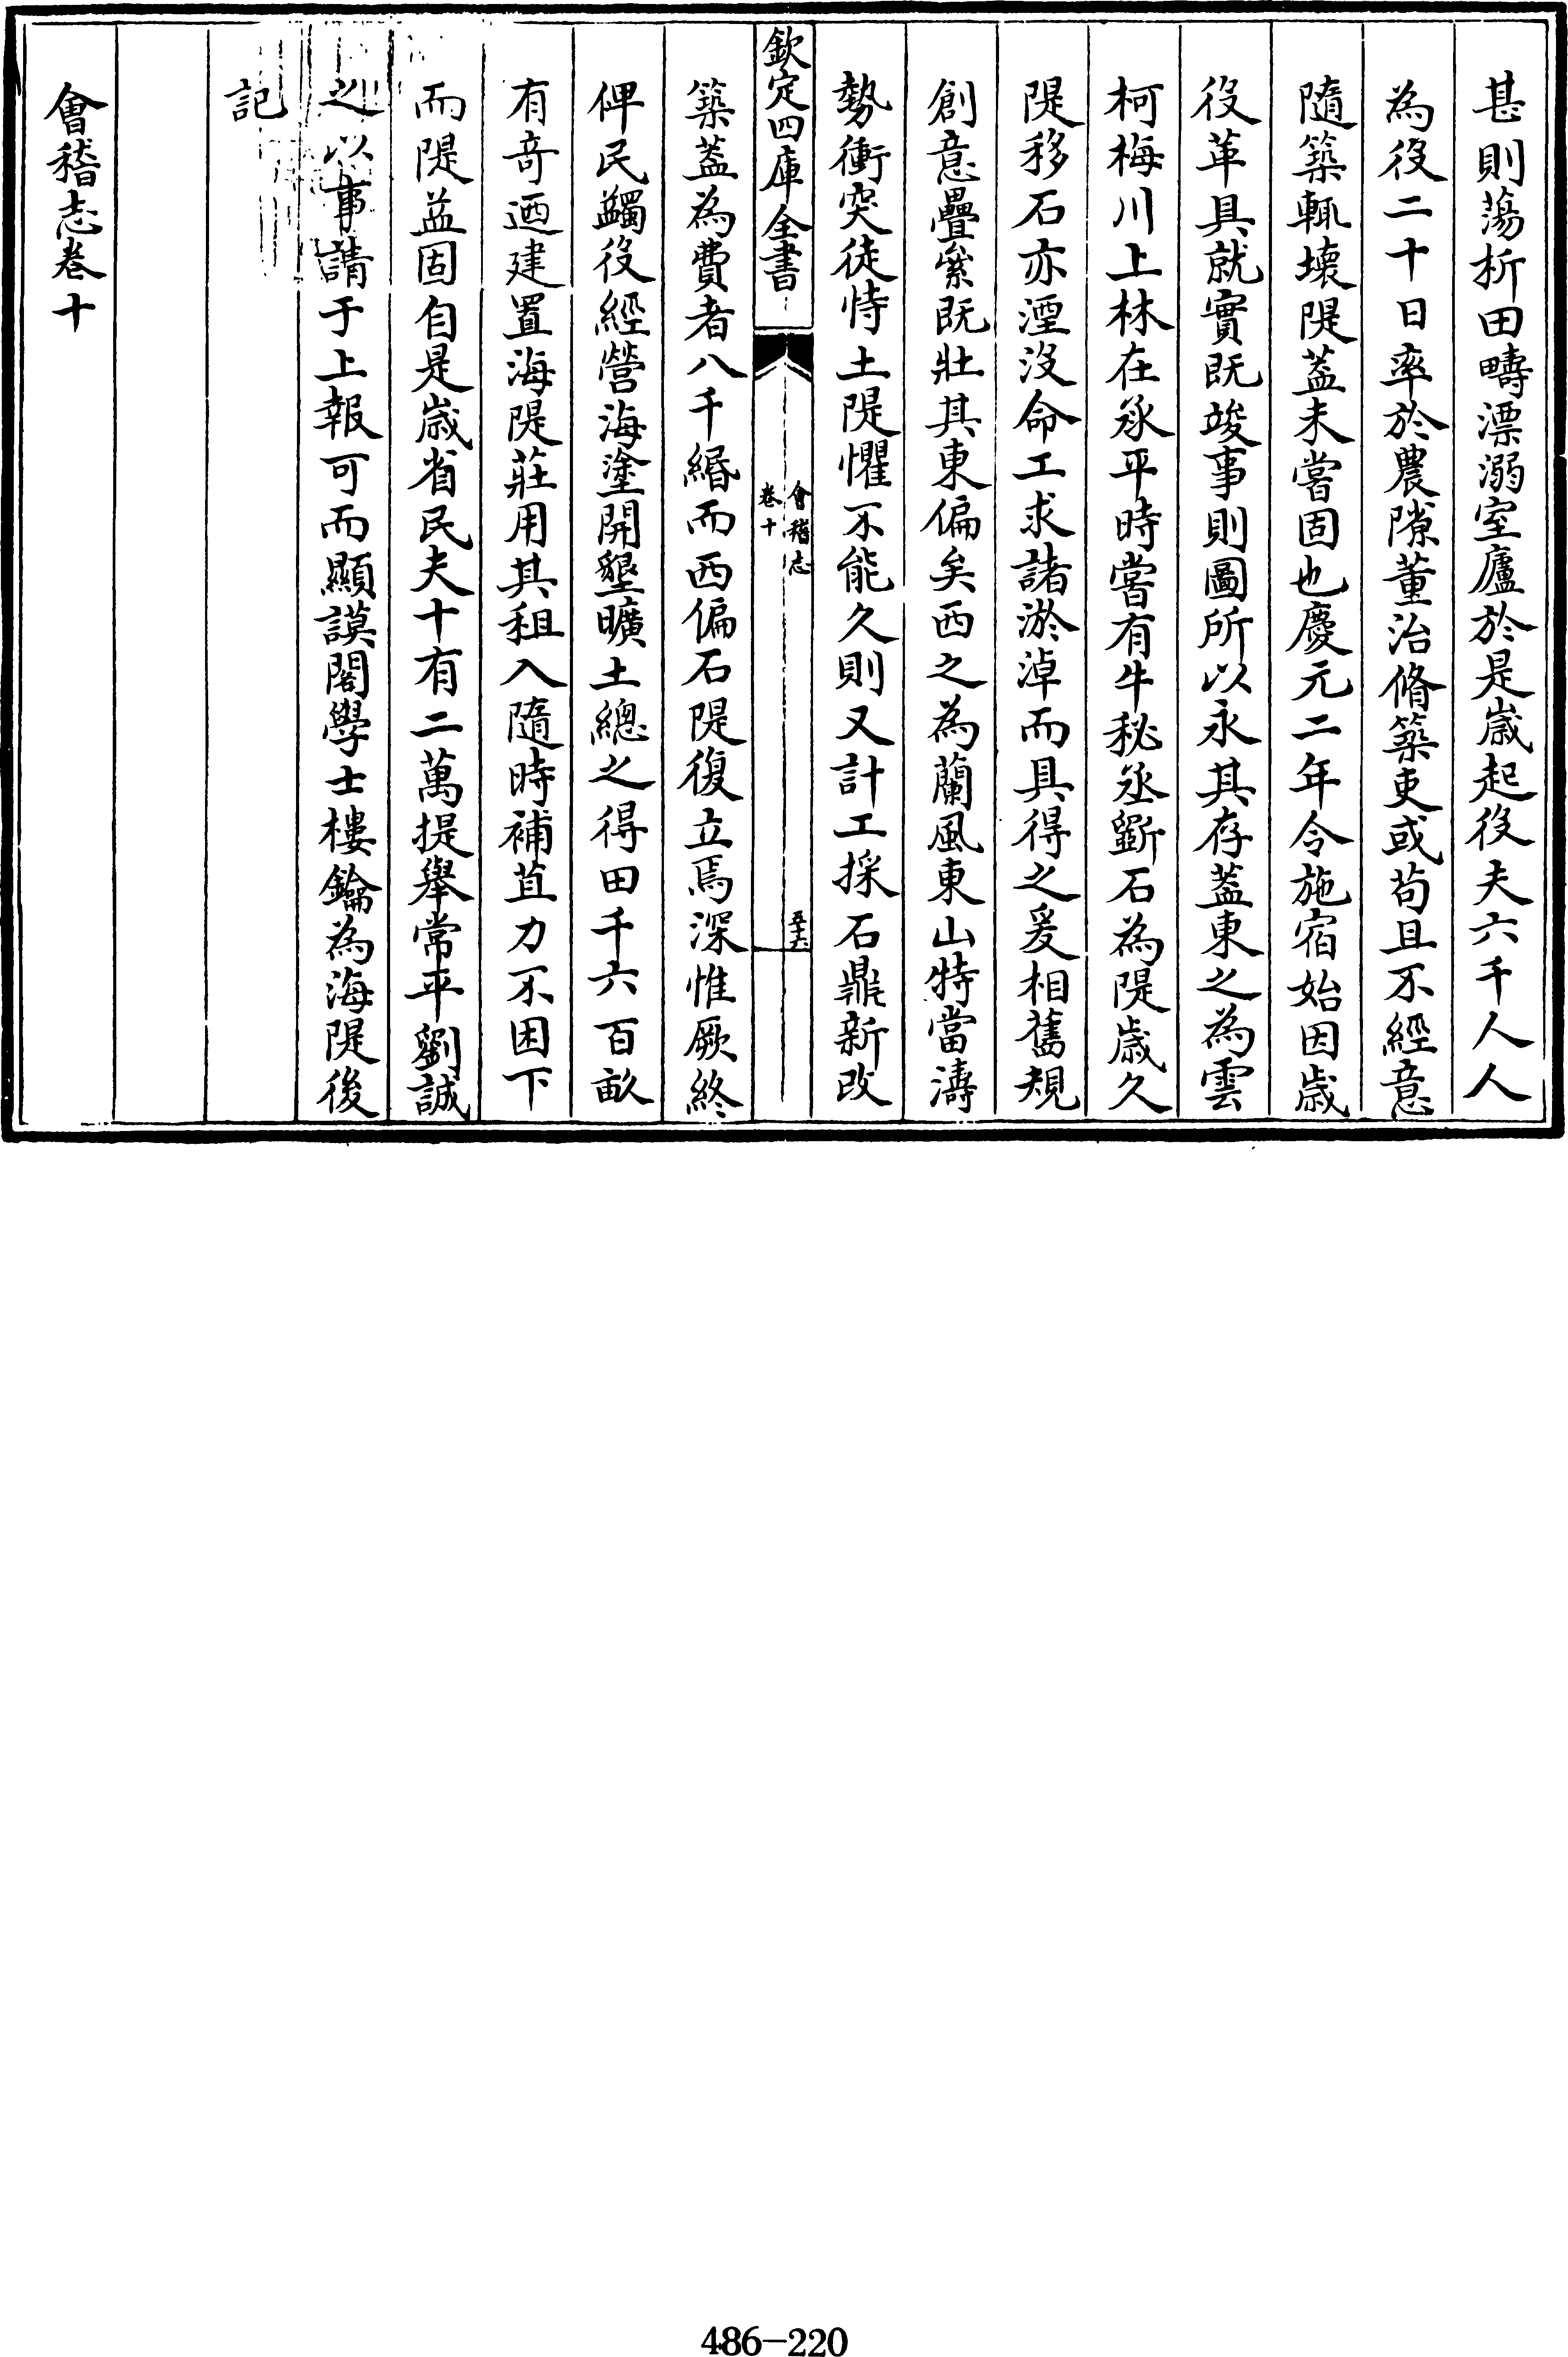 甚則蕩析田疇漂溺室廬於是歳起役夫六千人人
為役二十日率於農隙董治脩築吏或茍且不經意
隨築輒壊隄葢未嘗固也慶元二年令施宿始因歳
役革具就實既竣事則圖所以永其存葢東之為雲
柯梅川上林在承平時嘗有牛秘丞斵石為隄歳久
隄移石亦湮没命工求諸淤淖而具得之爰相舊規
創意疊絫既壯其東偏矣西之為蘭風東山特當濤
勢衝突徒恃土隄懼不能久則又計工採石鼎新改
欽定四庫全書
會稽志
卷十
五十六
築葢為費者八千緡而西偏石隄復立焉深惟厥終
俾民蠲役經營海塗開墾曠土總之得田千六百畝
有竒迺建置海隄莊用其租入隨時補苴力不困下
而隄益固自是歳省民夫十有二萬提舉常平劉誠
之以事請于上報可而顯謨閣學士樓鑰為海隄後
記
會稽志卷十
486-220